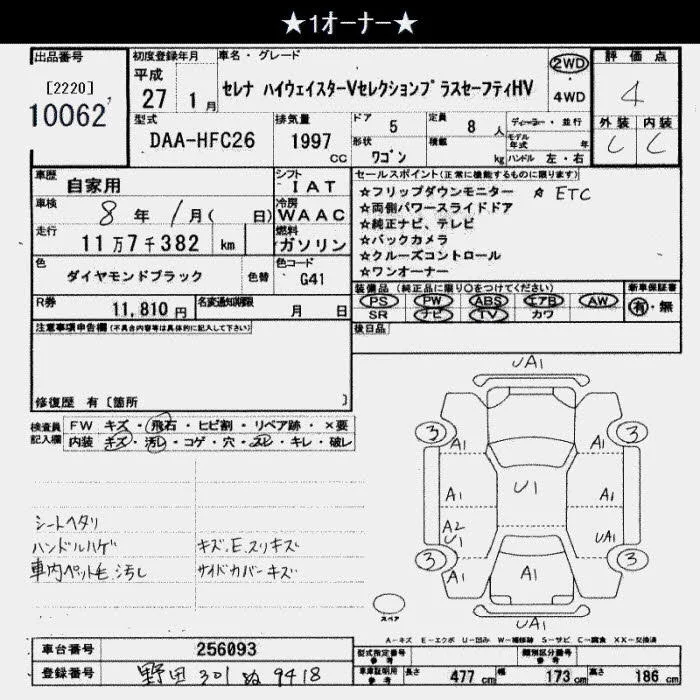 ★1オーナー★
出品番号
[2220]
10062
初度登録年月
平成
27年 1月
車名・グレード
セレナ ハイウェイスターVセレクションプラスセーフティHV
2WD
4WD
評価点
4
外装 内装
C C
型式
DAA-HFC26
排気量
1997
CC
ドア
5
定員
8 人
形状
ワゴン
積載
kg
ディーラー・並行
モデル年式 年
ハンドル 左・右
車歴
自家用
シフト
IAT
車検
8年 1月( 日)
冷房
WAAC
走行
11万7千382 km
燃料
ガソリン
色
ダイヤモンドブラック
色替
色コード
G41
R券
11,810円
名変通知期限
月 日
セールスポイント(正常に機能するものに限ります)
☆フリップダウンモニター ☆ ETC
☆両側パワースライドドア
☆純正ナビ、テレビ
☆バックカメラ
☆クルーズコントロール
☆ワンオーナー
装備品(純正品に限り〇をつけてください)
PS PW ABS エアB AW
SR ナビ TV カワ
新車保証書
有・無
後日品
注意事項申告欄(不具合内容等は具体的に記入して下さい)
修復歴 有〔箇所 〕
検査員記入欄
FW キズ・飛石・ヒビ割・リペア跡・×要
内装 キズ・汚レ・コゲ・穴・スレ・キレ・破レ
シートヘタリ
ハンドルハゲ
車内ペット毛、汚し
キズ、E、スリキズ
サイドカバーキズ
UA1
3 A1 A1 3
A1 U1 A1
A2
U1 UA1
3 A1 A1 3
スペア
UA1
A−キズ E−エクボ U−凹み W−補修跡 S−サビ C−腐食 XX−交換済
車台番号
256093
登録番号
野田 301 ぬ 9418
型式指定番号
参考
類別区分番号
参考
車庫証明用
参考
長さ 477 cm 幅 173 cm 高さ 186 cm